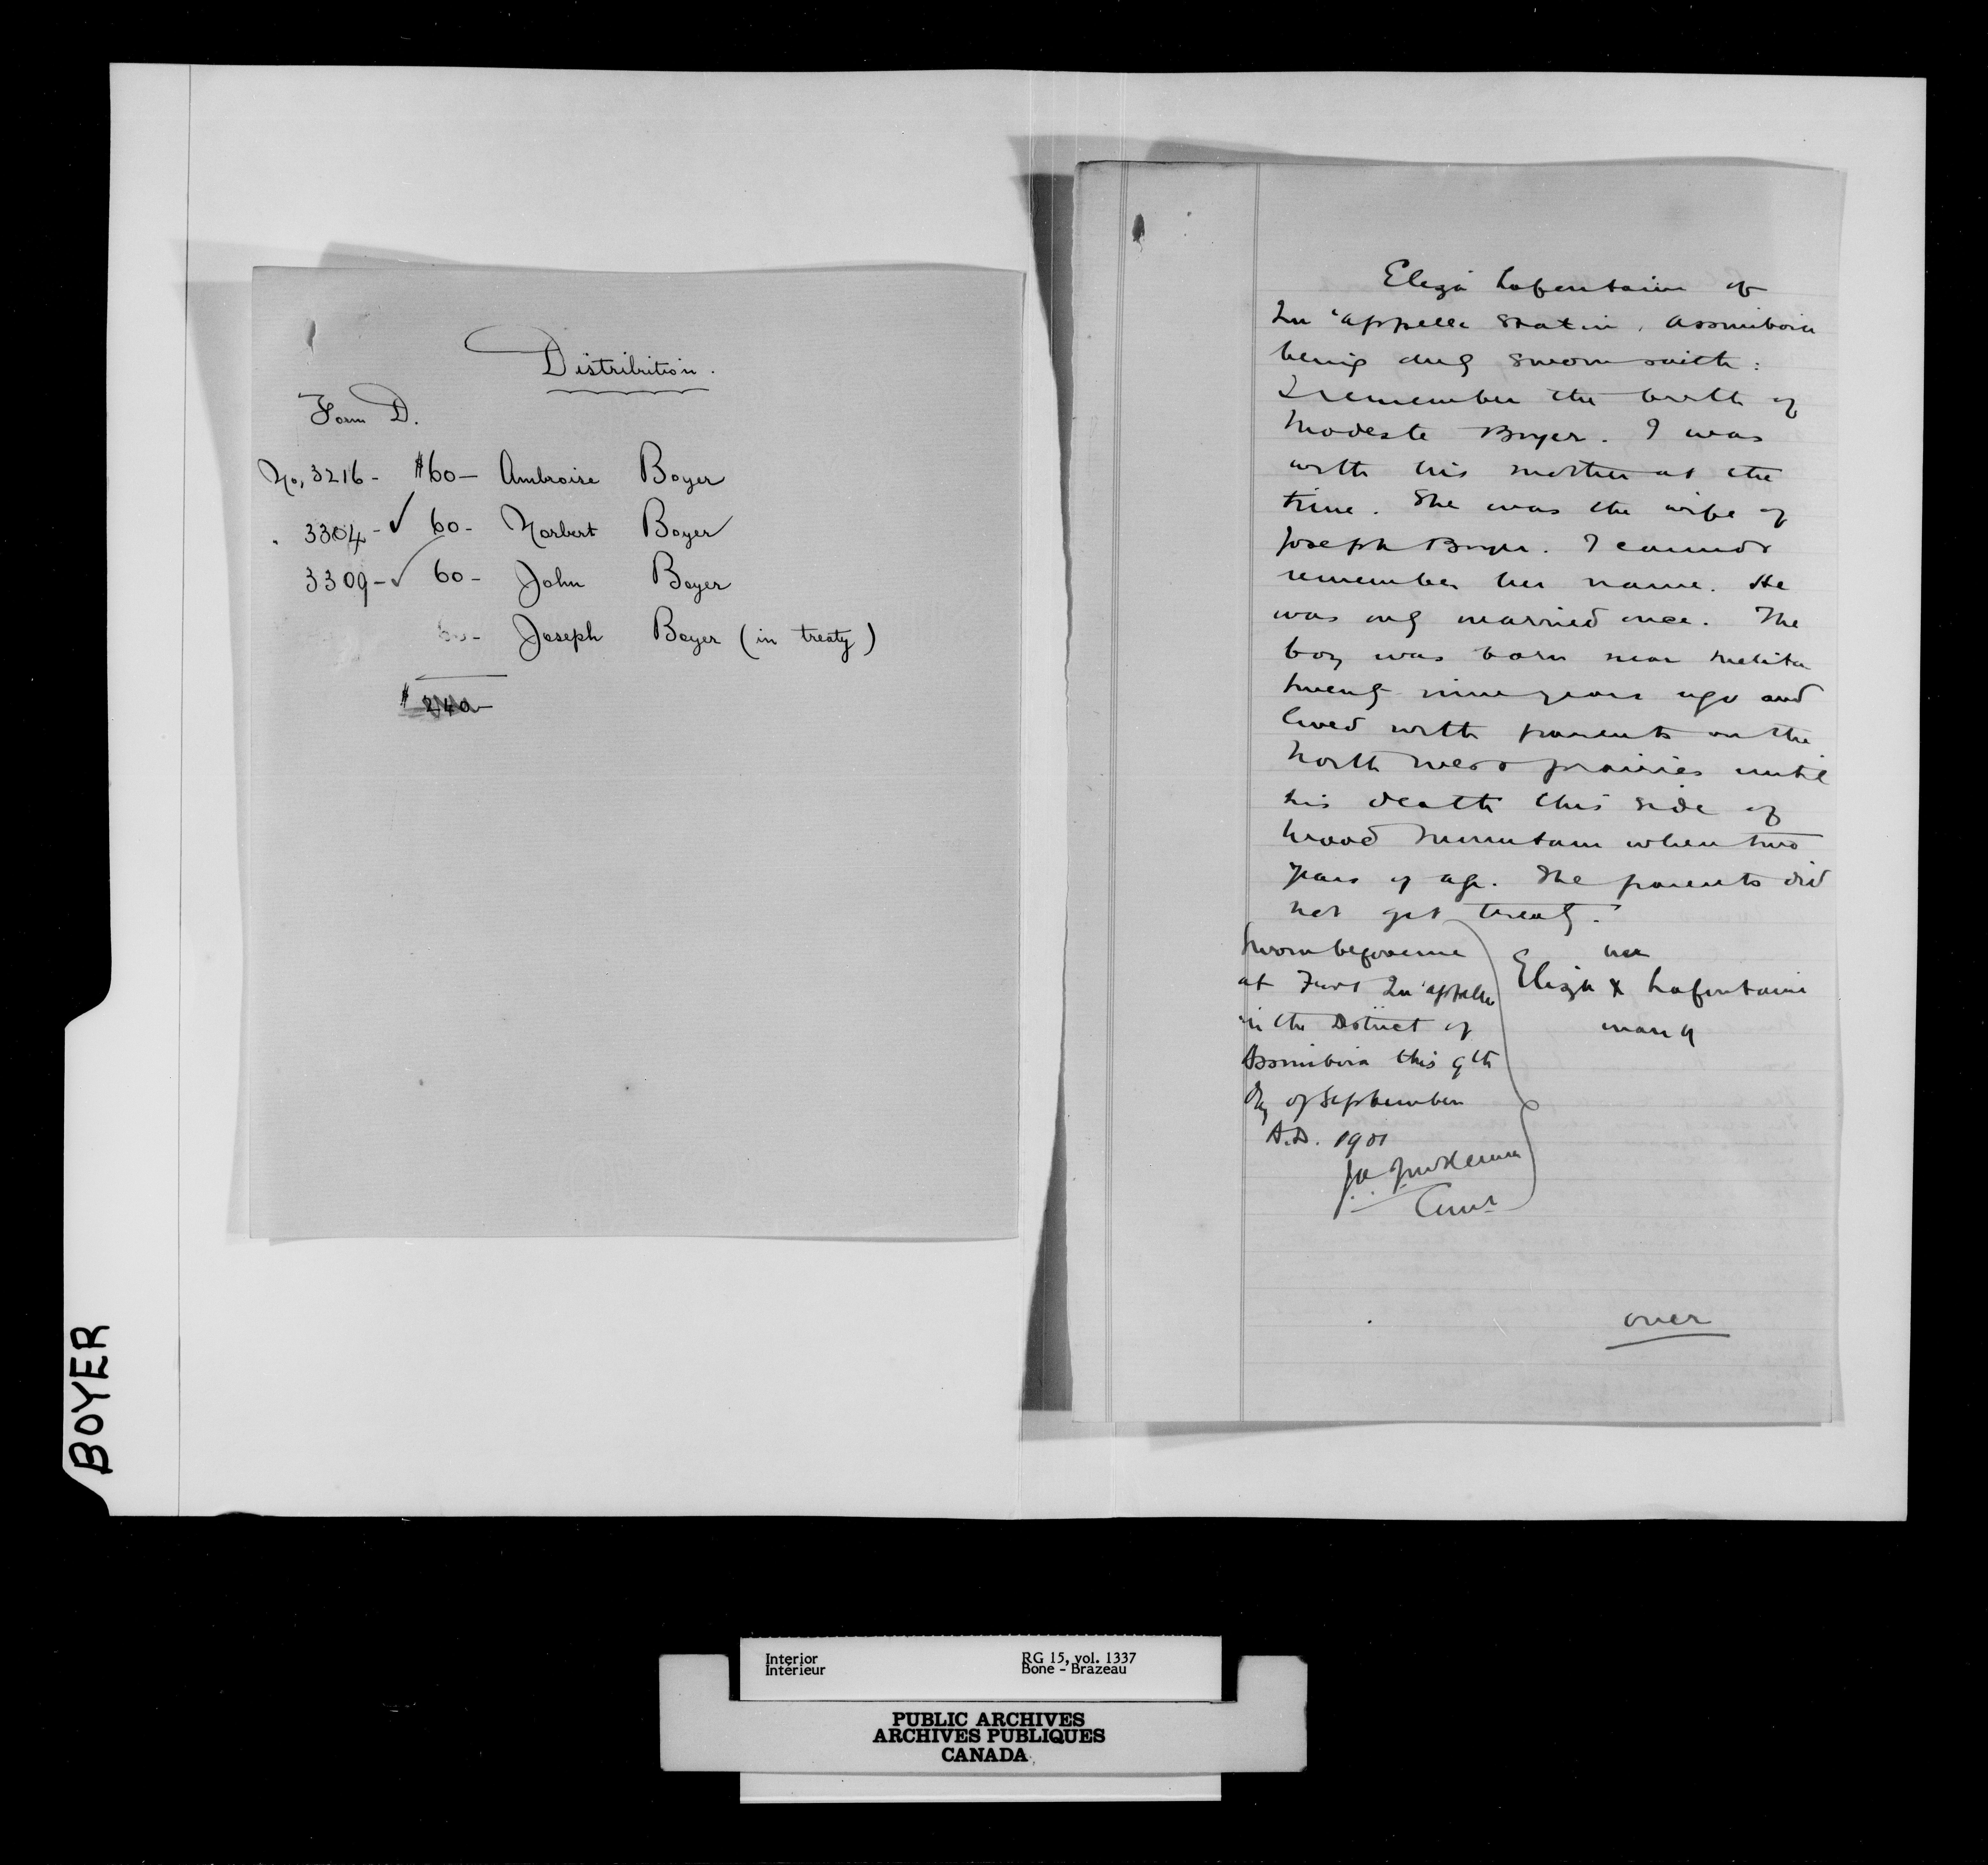 Distribution.
Form D.
No, 3216 - $60 - Ambroise Boyer
" 3304 - ✓ 60 - Norbert Boyer
3309 - ✓ 60 - John Boyer
60 - Joseph Boyer (in treaty)
$ 240 -
Eliza Lafontaine of
Qu'appelle Station, Assiniboia
being duly sworn saith:
I remember the birth of
Modeste Boyer. I was
with his mother at the
time. She was the wife of
Joseph Boyer. I cannot
remember her name. He
was only married once. The
boy was born near Melita
twenty nine years ago and
lived with parents on the
North West prairies until
his death this side of
Wood Mountain when two
years of age. The parents did
not get treaty.
Sworn before me
at Fort Qu'appelle
in the District of
Assiniboia this 9th
day of September
A.D. 1901
her
Eliza X Lafontaine
mark
Comr
over
BOYER
Interior
Intérieur
RG 15, vol. 1337
Bone - Brazeau
PUBLIC ARCHIVES
ARCHIVES PUBLIQUES
CANADA